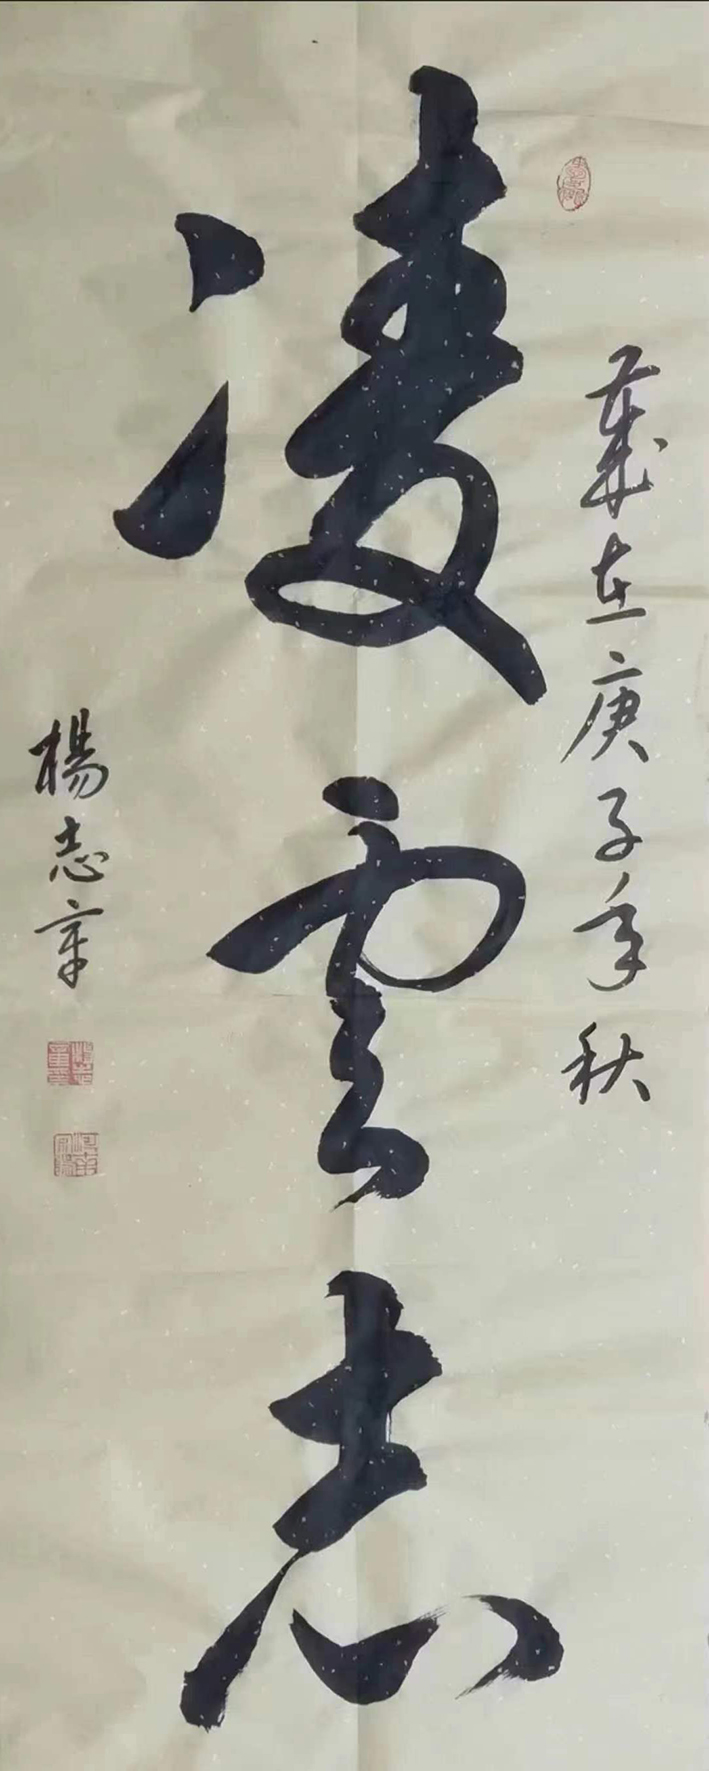 歲在庚子年秋
凌雲志
楊志章